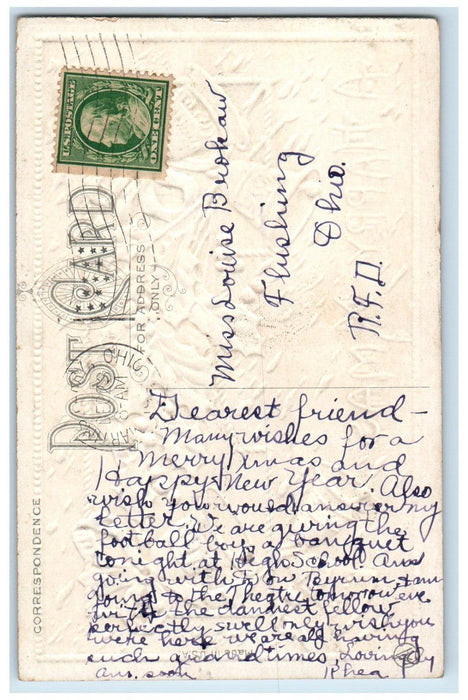 U.S. POSTAGE
ONE CENT
POST CARD
FOR ADDRESS ONLY
CORRESPONDENCE
OHIO
Miss Louise Brokaw
Flushing
Ohio.
R.F.D.
Dearest friend –
Many wishes for a
Merry Xmas and
Happy New Year. Also
wish you would answer my
letter. We are giving the
football boys a banquet
tonight at High School. Am
going with Byrum & am
going to the Theatre tomorrow eve
with the dandiest fellow,
perfectly swell only wish you
were here we are all having
such grand times, Lovingly
Ans. soon. Rhea
Made in U.S.A.